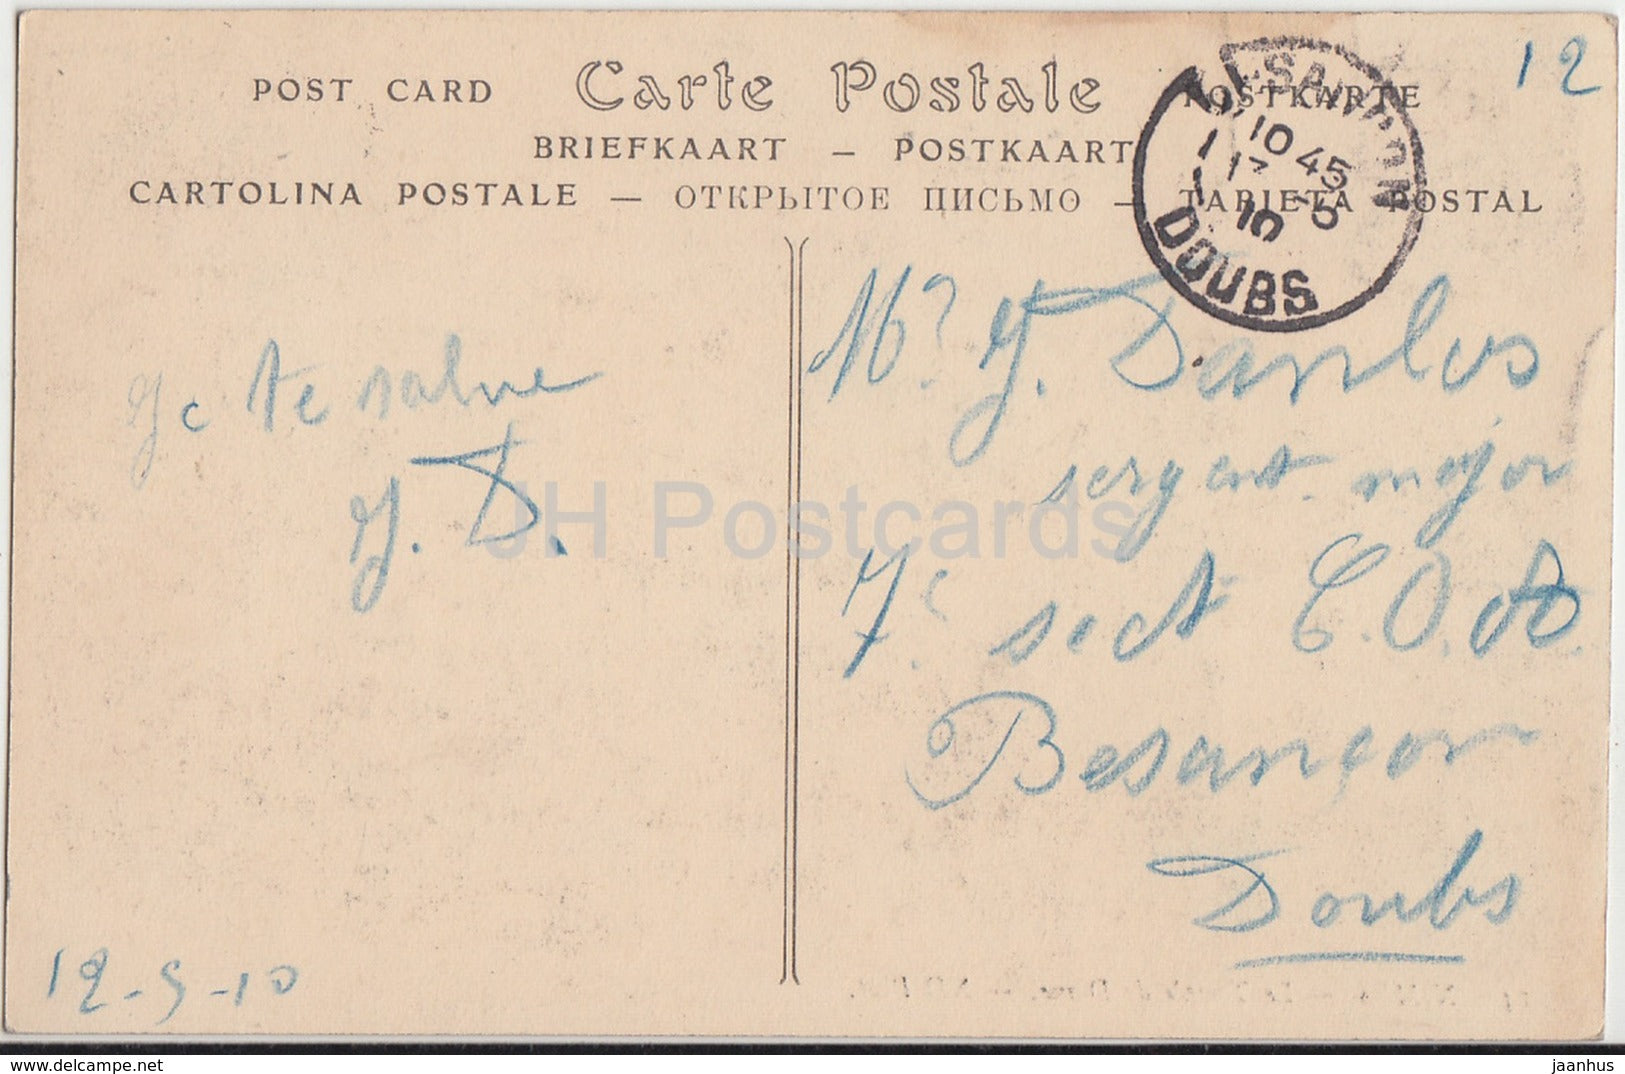 12
POST CARD Carte Postale POSTKARTE
BRIEFKAART – POSTKAART
CARTOLINA POSTALE – ОТКРЫТОЕ ПИСЬМО – TARJETA POSTAL
10 45
10
DOUBS
Je te salue
J. D.
12-5-10
Mr J. Danlos
sergent major
7e sect C.O.A.
Besançon
Doubs
JH Postcards
www.delcampe.net
jaanhus